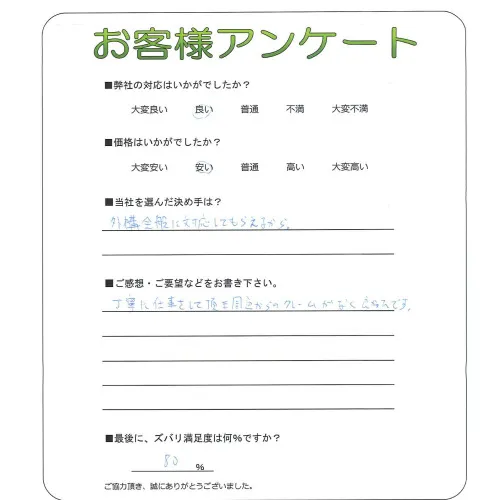 お客様アンケート
■弊社の対応はいかがでしたか？
大変良い 良い 普通 不満 大変不満
■価格はいかがでしたか？
大変安い 安い 普通 高い 大変高い
■当社を選んだ決め手は？
外構全般に対応してもらえるから。
■ご感想・ご要望などをお書き下さい。
丁寧に仕事をして頂き周辺からのクレームがなく です。
■最後に、ズバリ満足度は何%ですか？
80 %
ご協力頂き、誠にありがとうございました。